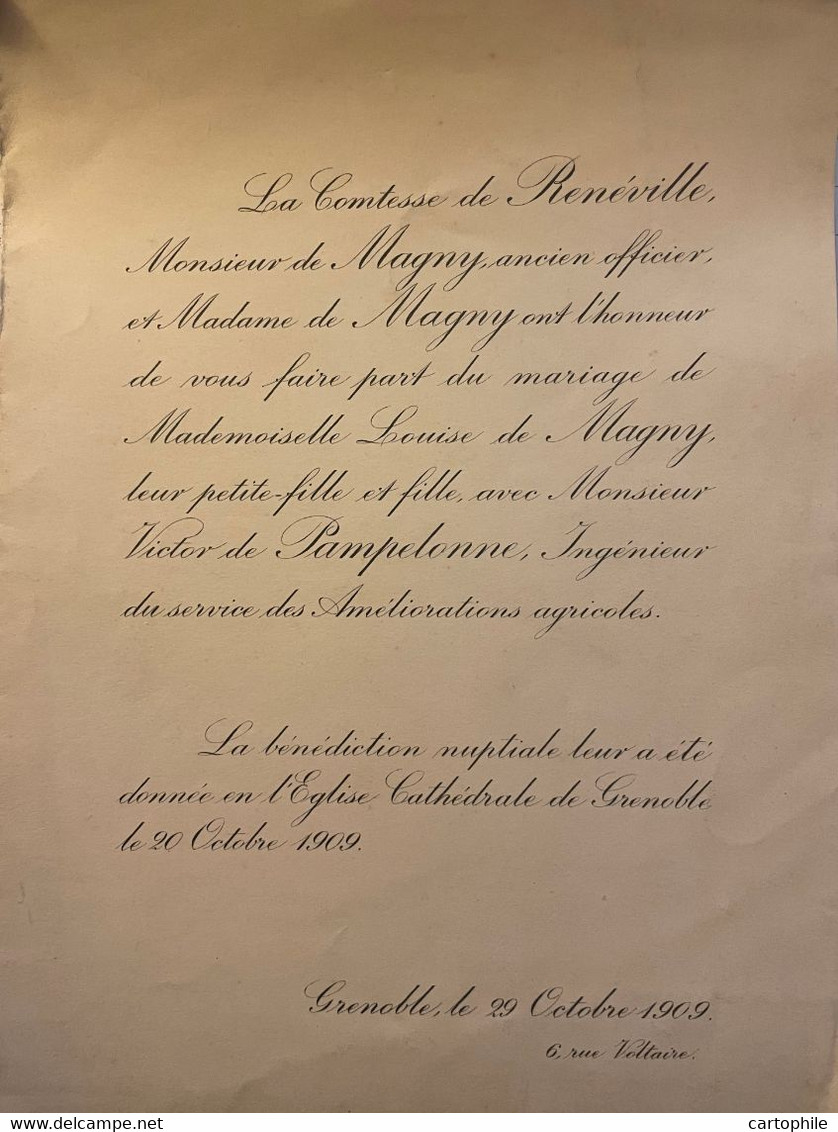 La Comtesse de Renéville,
Monsieur de Magny, ancien officier,
et Madame de Magny ont l'honneur
de vous faire part du mariage de
Mademoiselle Louise de Magny,
leur petite-fille et fille, avec Monsieur
Victor de Pampelonne, Ingénieur
du service des Améliorations agricoles.
La bénédiction nuptiale leur a été
donnée en l'Eglise Cathédrale de Grenoble
le 20 Octobre 1909.
Grenoble, le 29 Octobre 1909.
6, rue Voltaire.
delcampe.net
cartophile